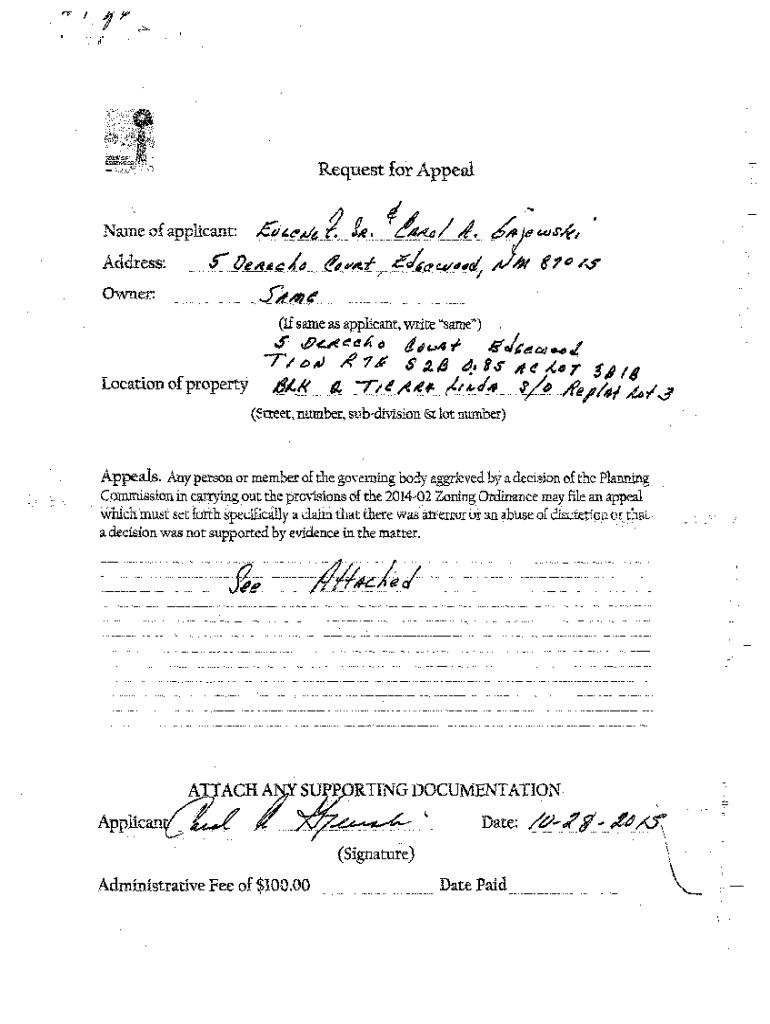 Request for Appeal
Name of applicant: Eugene F. Sr. & Carol A. Gajewski
Address: 5 Derecho Court, Edgewood, NM 87015
Owner: Same
(If same as applicant, write "same")
5 Derecho Court Edgewood
T10N R7E S28 0.85 AC LOT 3A1B
Location of property BLK Q TIERRA Linda S/D Replat Lot 3
(Street, number, sub-division & lot number)
Appeals. Any person or member of the governing body aggrieved by a decision of the Planning
Commission in carrying out the provisions of the 2014-02 Zoning Ordinance may file an appeal
which must set forth specifically a claim that there was an error or an abuse of discretion or that
a decision was not supported by evidence in the matter.
See Attached
ATTACH ANY SUPPORTING DOCUMENTATION
Applicant Carol A Gajewski Date: 10-28-2015
(Signature)
Administrative Fee of $100.00 Date Paid